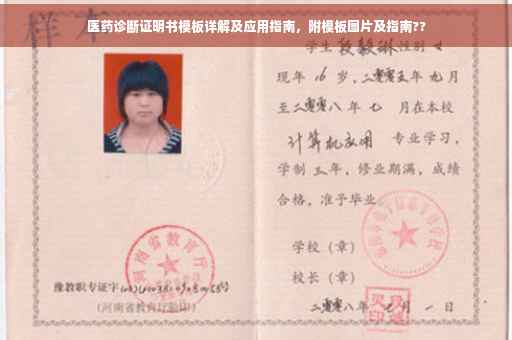 医药诊断证明书模板详解及应用指南，附模板图片及指南??
样本
学生 段毅琳 性别 女
现年 16 岁，二零零五年 九月
至二零零八年 七 月在本校
计算机应用 专业学习，
学制 三年，修业期满，成绩
合格，准予毕业。
学校（章）
校长（章）
二零零八年 七 月 一 日
河南省教育厅
豫教职专证字
（河南省教育厅验印）